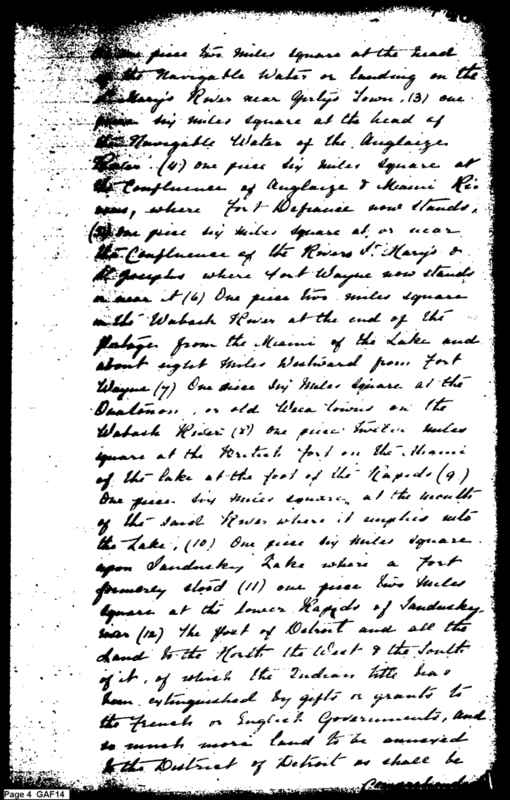 one piece two miles square at the head
of the Navigable Water or landing on the
St Mary's River near Girtys Town, (3) one
piece six miles square at the head of
the Navigable Water of the Auglaize
River. (4) one piece six miles square at
the Confluence of Auglaize & Miami Riv
ers, where Fort Defiance now stands,
(5) One piece six miles square at or near
the Confluence of the Rivers St. Mary's &
St Josephs where Fort Wayne now stands
or near it (6) One piece two miles square
on the Wabash River at the end of the
portage from the Miami of the Lake and
about eight Miles Westward from Fort
Wayne (7) One piece Six Miles Square at the
Ouatanon, or old Wea towns on the
Wabash River (8) one piece Twelve miles
square at the British fort on the Miami
of the lake at the foot of the Rapids (9)
One piece Six Miles square, at the mouth
of the said River where it empties into
the Lake, (10) One piece six miles square
upon Sandusky Lake where a Fort
formerly stood (11) one piece two Miles
Square at the lower Rapids of Sandusky
(12) The Post of Detroit and all the
Land to the North the West & the South
of it, of which the Indian title has
been extinguished by gifts or grants to
the French or English Governments, and
so much more land to be annexed
to the District of Detroit as shall be
Page 4 GAF14